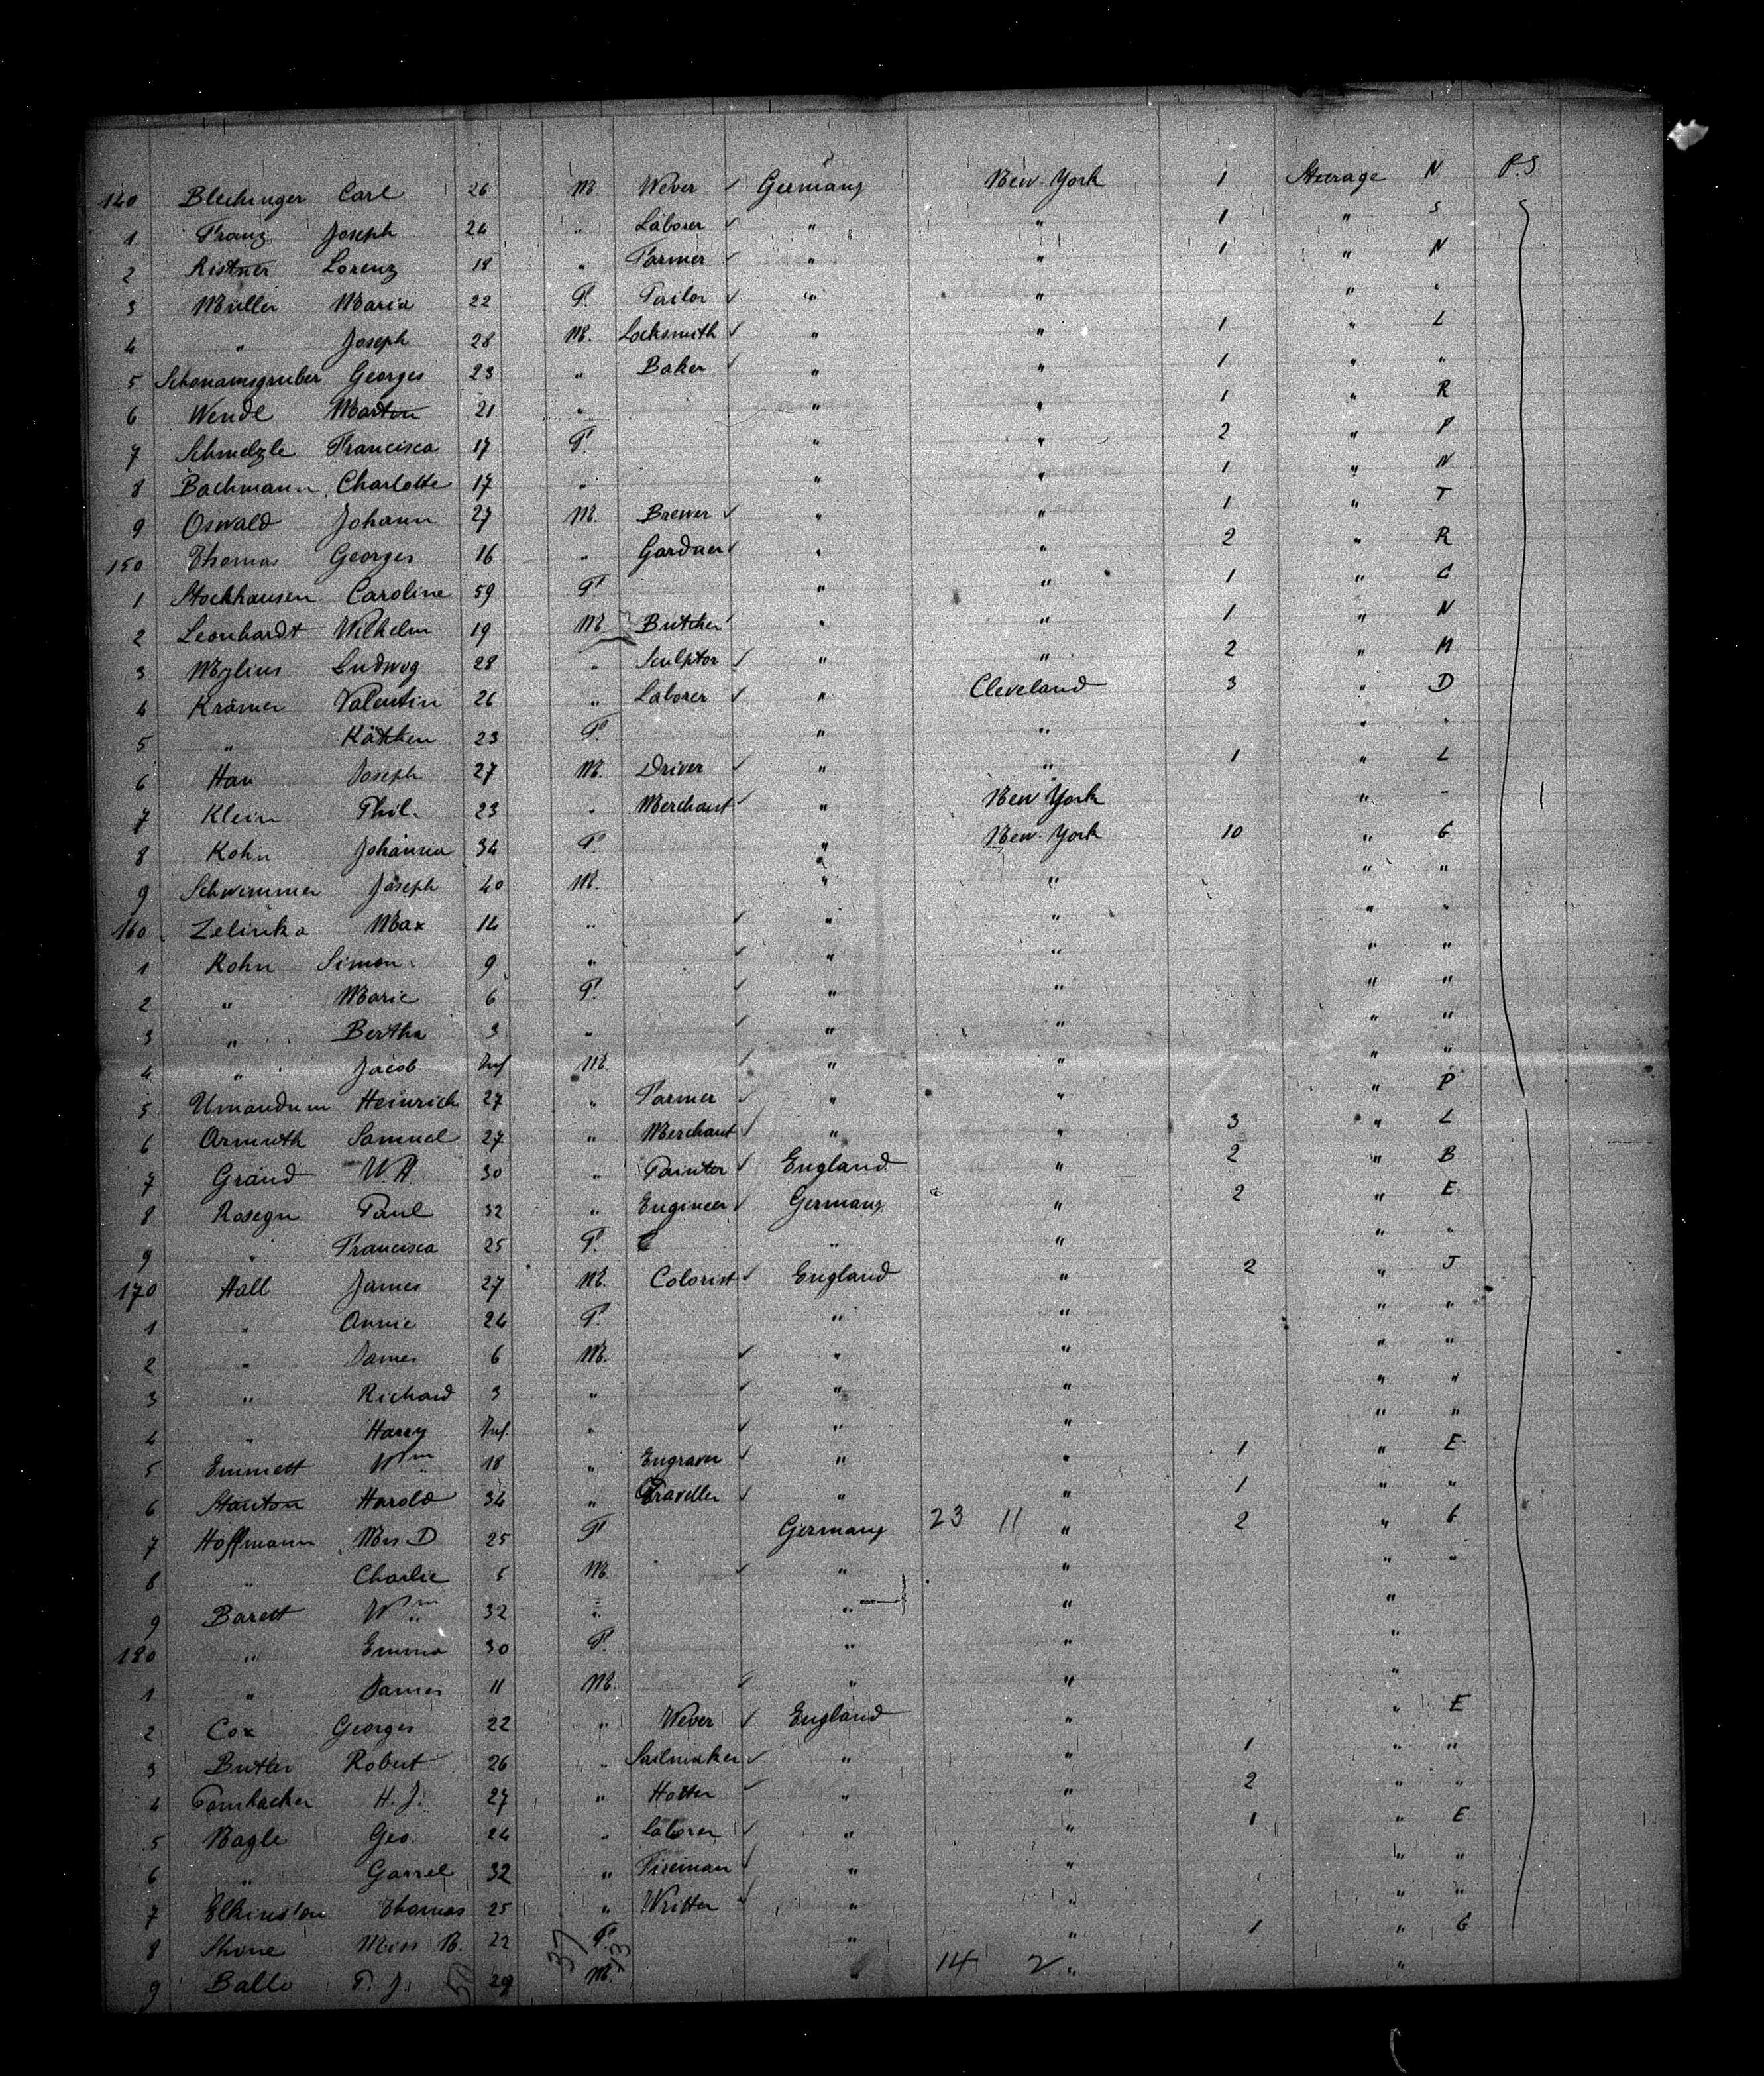 140 Blechinger Carl 26 M Wever ✓ Germany New York 1 Steerage N P.S
1 Franz Joseph 24 " Laborer ✓ " " 1 " S
2 Ristner Lorenz 18 " Farmer ✓ " " 1 " N
3 Müller Maria 22 F. Tailor ✓ " " " "
4 " Joseph 28 M. Locksmith ✓ " " 1 " L
5 Georges 23 " Baker ✓ " " 1 " "
6 Wendl Martin 21 " " " 1 " R
7 Schmelzle Francisca 17 F. " " 2 " P
8 Bachmann Charlotte 17 " " " 1 " N
9 Oswald Johann 27 M. Brewer ✓ " " 1 " T
150 Thomas Georges 16 " Gardner ✓ " " 2 " R
1 Stockhausen Caroline 59 F. " " 1 " G
2 Leonhardt Wilhelm 19 M Butcher ✓ " " 1 " N
3 Mylius Ludwog 28 " Sculptor ✓ " " 2 " M
4 Krämer Valentin 26 " Laborer ✓ " Cleveland 3 " D
5 " Käthen 23 F. " " " "
6 Hau Joseph 27 M. Driver ✓ " " 1 " L
7 Klein Phil. 23 " Merchant ✓ " New York " "
8 Kohn Johanna 34 F. " New York 10 " G
9 Schwimmer Joseph 40 M. " " " "
160 Zelinka Max 14 " ✓ " " " "
1 Kohn Simon 9 " ✓ " " " "
2 " Marie 6 F. ✓ " " " "
3 " Bertha 3 " ✓ " " " "
4 " Jacob Inf M. ✓ " " " "
5 Heinrich 27 " Farmer ✓ " " " P
6 Armuth Samuel 27 " Merchant ✓ " " 3 " L
7 Grand W.H. 30 " Painter ✓ England " 2 " B
8 Rosegn Paul 32 " Engineer ✓ Germany " 2 " E
9 " Francisca 25 F. " " " "
170 Hall James 27 M. Colorist ✓ England " 2 " J
1 " Annie 24 F. " " " "
2 " James 6 M. ✓ " " " "
3 " Richard 3 " ✓ " " " "
4 " Harry Inf. " ✓ " " " "
5 Emmett Wm 18 " Engraver ✓ " " 1 " E
6 Stanton Harold 34 " Traveller ✓ " " 1 " "
7 Hoffmann Mrs D 25 F Germany 23 11 " 2 " G
8 " Charlie 5 M. ✓ " " " "
9 Barett Wm 32 " " " "
180 " Emma 30 F. " " "
1 " James 11 M. ✓ " " "
2 Cox Georges 22 " Wever ✓ England " " E
3 Butler Robert 26 " Sailmaker ✓ " " 1 " "
4 H. J. 27 " Hatter ✓ " " 2 " "
5 Nagle Geo. 24 " Laborer ✓ " " 1 " E
6 " Garrel 32 " Fireman ✓ " " " "
7 Elkinston Thomas 25 " Writter ✓ " " " "
8 Shone Miss B. 22 F. " " 1 " G
9 Balle F. J. 29 M. " 14 2 " "
37 13